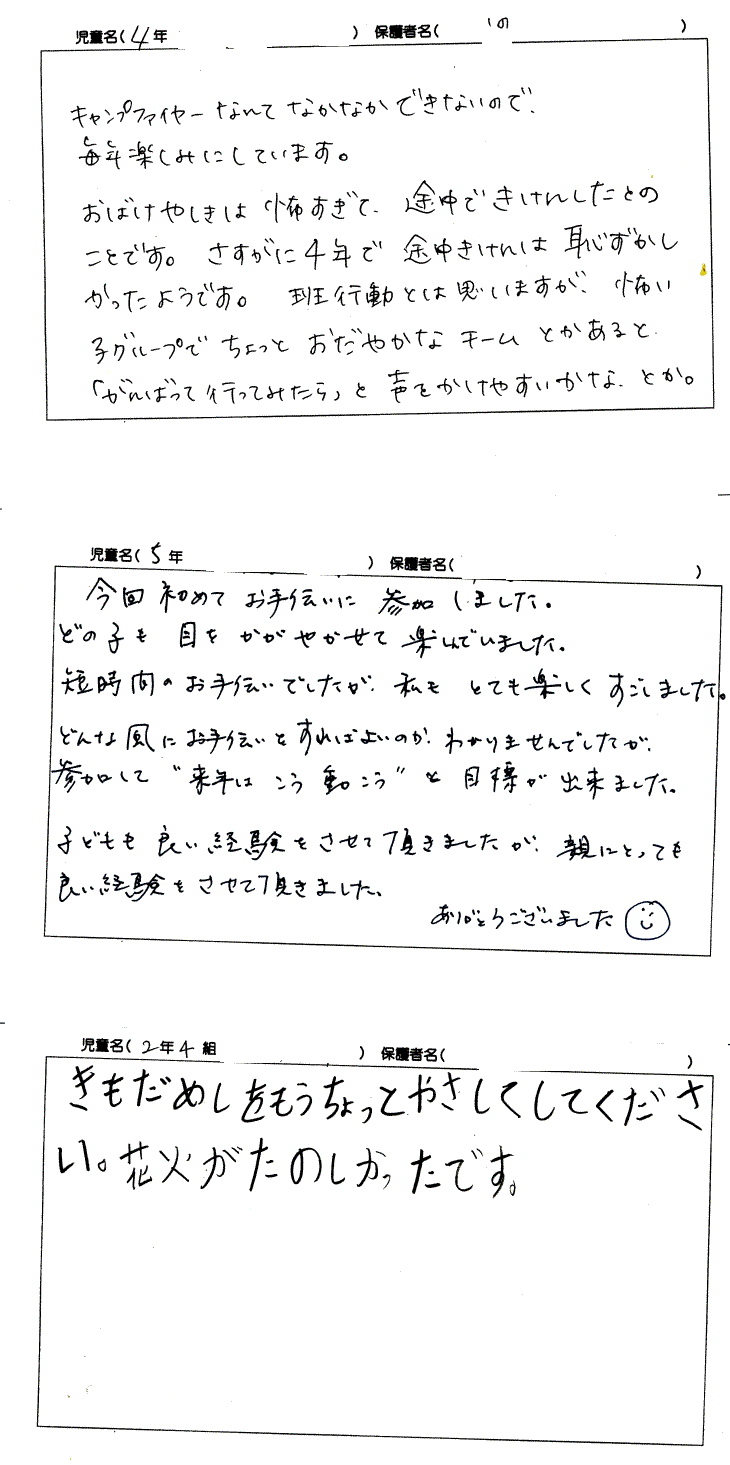 児童名(4年 ) 保護者名( の )
キャンプファイヤーなんてなかなかできないので、
毎年楽しみにしています。
おばけやしきは怖すぎて、途中できけんしたとの
ことです。さすがに4年で途中きけんは恥ずかし
かったようです。班行動とは思いますが、怖い
子グループでちょっとおだやかなチームとかあると
「がんばって行ってみたら」と声をかけやすいかな、とか。
児童名(5年 ) 保護者名( )
今回初めてお手伝いに参加しました。
どの子も目をかがやかせて楽しんでいました。
短時間のお手伝いでしたが、私もとても楽しくすごしました。
どんな風にお手伝いをすればよいのか、わかりませんでしたが、
参加して"来年はこう動こう"と目標が出来ました。
子どもも良い経験をさせて頂きましたが、親にとっても
良い経験をさせて頂きました。
ありがとうございました
児童名(2年4組 ) 保護者名( )
きもだめしをもうちょっとやさしくしてくださ
い。花火がたのしかったです。